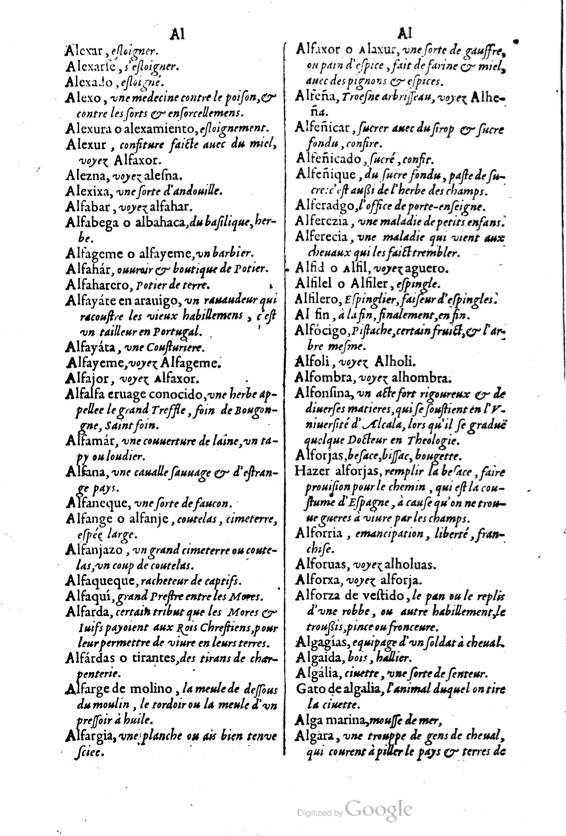 Al
Alexar, esloigner.
Alexarse, s'esloigner.
Alexado, esloigné.
Alexo, vne medecine contre le poison, &
contre les sorts & ensorcellemens.
Alexura o alexamiento, esloignement.
Alexur, confiture faicte auec du miel,
voyez Alfaxor.
Alezna, voyez alesna.
Alexixa, vne sorte d'andouille.
Alfabar, voyez alfahar.
Alfabega o albahaca, du basilique, her-
be.
Alfageme o alfayeme, vn barbier.
Alfahár, ouuroir & boutique de Potier.
Alfaharero, Potier de terre.
Alfayáte en arauigo, vn rauaudeur qui
racoustre les vieux habillemens, c'est
vn tailleur en Portugal.
Alfayáta, vne Cousturiere.
Alfayeme, voyez Alfageme.
Alfajor, voyez Alfaxor.
Alfalfa eruage conocido, vne herbe ap-
pellee le grand Treffle, foin de Bougon-
gne, Saint foin.
Alfamár, vne couuerture de laine, vn ta-
py ou loudier.
Alfana, vne caualle sauuage & d'estran-
ge pays.
Alfaneque, vne sorte de faucon.
Alfange o alfanje, coutelas, cimeterre,
espée large.
Alfanjazo, vn grand cimeterre ou coute-
las, vn coup de coutelas.
Alfaqueque, racheteur de captifs.
Alfaquí, grand Prestre entre les Mores.
Alfarda, certain tribut que les Mores &
Iuifs payoient aux Rois Chrestiens, pour
leur permettre de viure en leurs terres.
Alfárdas o tirantes, des tirans de char-
penterie.
Alfarge de molino, la meule de dessous
du moulin, le tordoir ou la meule d'vn
pressoir à huile.
Alfargia, vne planche ou ais bien tenue
sciee.
Al
Alfaxor o Alaxur, vne sorte de gauffre,
ou pain d'espice, fait de farine & miel,
auec des pignons & espices.
Alfeña, Troesne arbrisseau, voyez Alhe-
ña.
Alfeñicar, sucrer auec du sirop & sucre
fondu, confire.
Alfeñicado, sucré, confit.
Alfeñique, du sucre fondu, paste de su-
cre: c'est außi de l'herbe des champs.
Alferadgo, l'office de porte-enseigne.
Alferezia, vne maladie de petits enfans.
Alferecia, vne maladie qui vient aux
cheuaux qui les faict trembler.
Alfid o Alfil, voyez aguero.
Alfilel o Alfiler, espingle.
Alfilero, Espinglier, faiseur d'espingles.
Al fin, à la fin, finalement, en fin.
Alfócigo, Pistache, certain fruict, & l'ar-
bre mesme.
Alfoli, voyez Alholi.
Alfombra, voyez alhombra.
Alfonsina, vn acte fort rigoureux & de
diuerses matieres, qui se soustient en l'V-
niuersité d'Alcala, lors qu'il se graduë
quelque Docteur en Theologie.
Alforjas, besace, bissac, bougette.
Hazer alforjas, remplir la besace, faire
prouision pour le chemin, qui est la cou-
stume d'Espagne, à cause qu'on ne trou-
ue gueres à viure par les champs.
Alforria, emancipation, liberté, fran-
chise.
Alforuas, voyez alholuas.
Alforxa, voyez alforja.
Alforza de vestido, le pan ou le replis
d'vne robbe, ou autre habillement, le
troußis, pince ou fronceure.
Algagias, equipage d'vn soldat à cheual.
Algaida, bois, hallier.
Algália, ciuette, vne sorte de senteur.
Gato de algalia, l'animal duquel on tire
la ciuette.
Alga marina, mousse de mer,
Algara, vne trouppe de gens de cheual,
qui courent à piller le pays & terres de
Digitized by Google